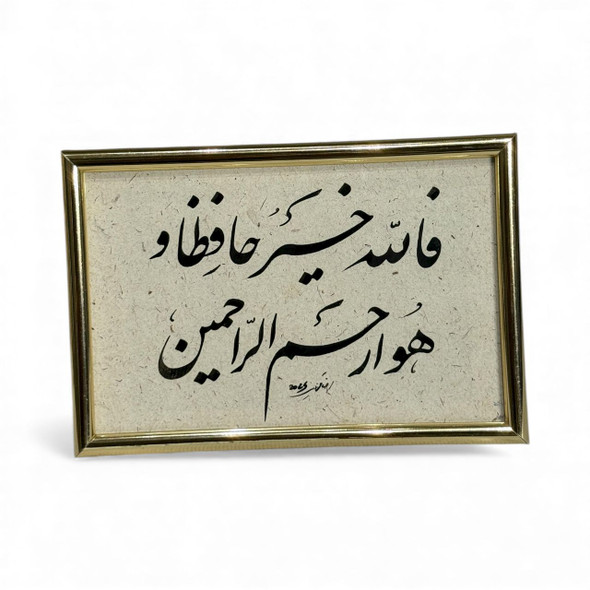 فالله خیرٌ حافِظا و
هُو ارحم الراحمین